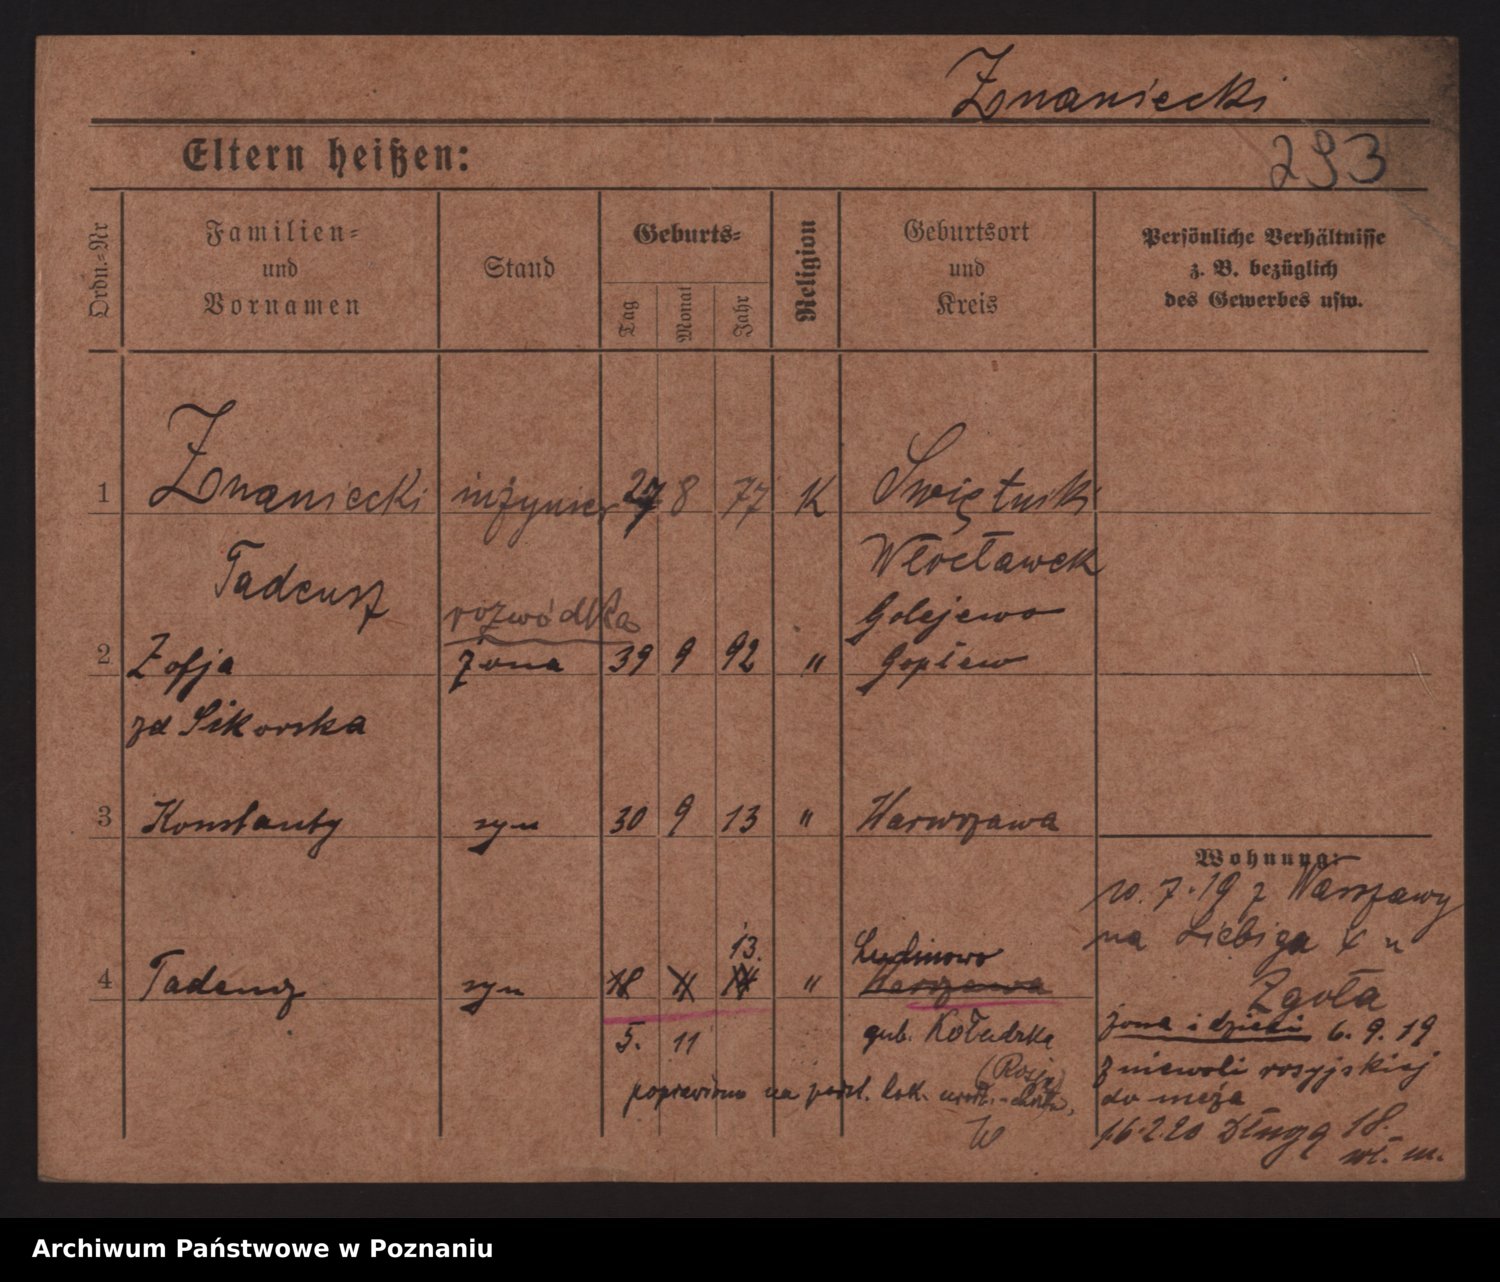 Znaniecki
Eltern heißen:
293
Ordn.-Nr
Familien-
und
Vornamen
Stand
Geburts-
Tag
Monat
Jahr
Religion
Geburtsort
und
Kreis
Persönliche Verhältnisse
z. B. bezüglich
des Gewerbes usw.
1 Znaniecki inżynier 27 8 77 K Święt
Tadeusz Włocławek
rozwódka Golejewo
2 Zofja żona 9 92 "
zd Sikorska
3 Konstanty syn 30 9 13 " Warszawa
Wohnung:
10.7.19 z Warszawy
na Liebiga
13. Ludinowo
4 Tadeusz syn 18 11 14 " Warszawa
Zgoła
5. 11 gub. Kałudzka
(Rosja)
żona i dzieci 6.9.19
z niewoli rosyjskiej
do męża
poprawiono na podst.
16.2.20 Długa 18.
wł. m.
W
Archiwum Państwowe w Poznaniu